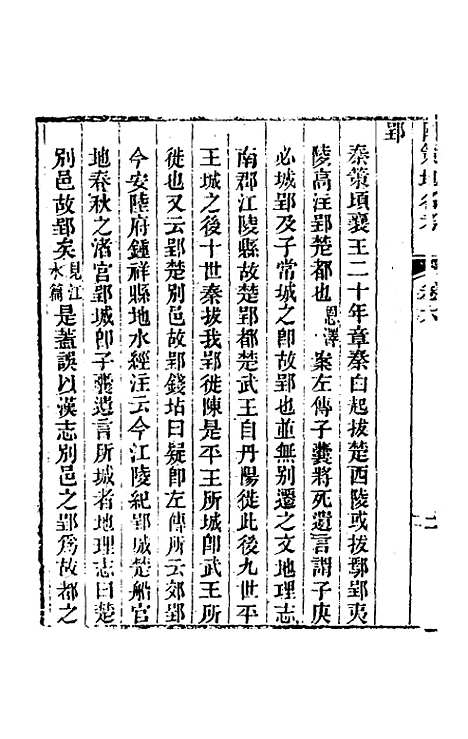 國策地名考 卷六 二
郢
秦策頃襄王二十年章秦白起拔楚西陵或拔鄢郢夷
陵高注郢楚都也恩澤案左傳子囊將死遺言謂子庚
必城郢及子常城之卽故郢也並無別遷之文地理志
南郡江陵縣故楚郢都楚武王自丹陽徙此後九世平
王城之後十世秦拔我郢徙陳是平王所城卽武王所
徙也又云郢楚別邑故郢錢坫曰疑卽左傳所云郊郢
今安陸府鍾祥縣地水經注云今江陵紀郢城楚船官
地春秋之渚宮郢城卽子囊遺言所城者地理志曰楚
別邑故郢矣見江水篇是蓋誤以漢志別邑之郢爲故都之